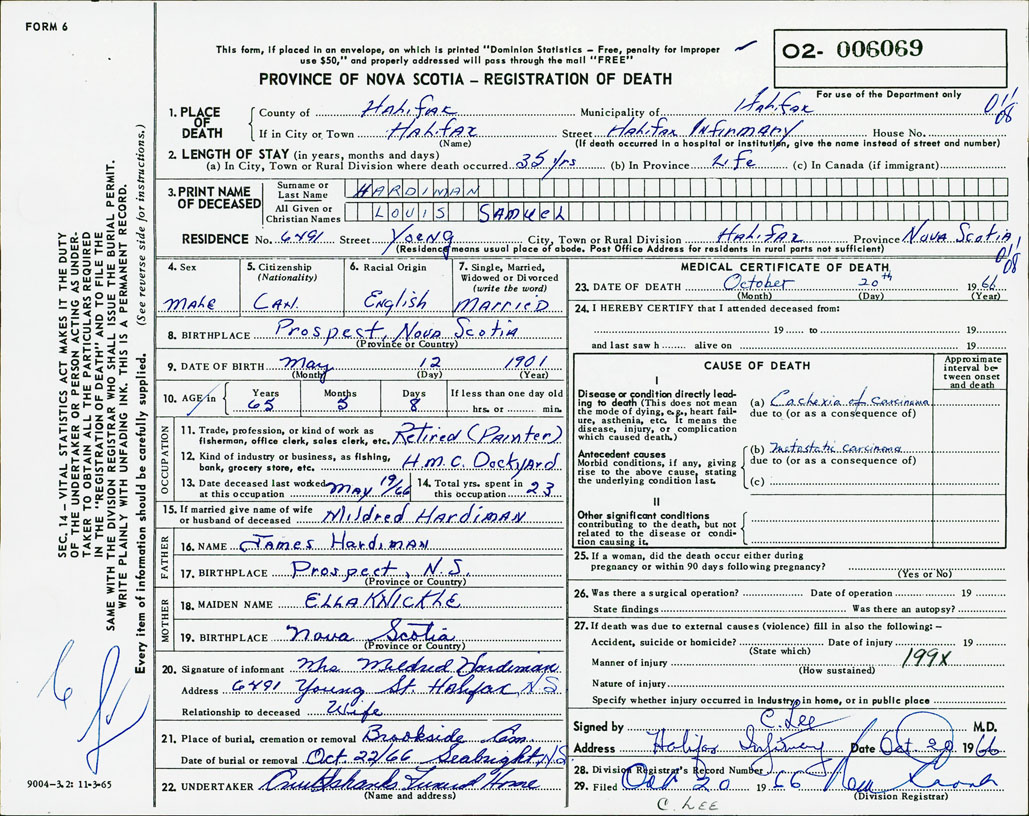 FORM 6
This form, if placed in an envelope, on which is printed "Dominion Statistics - Free, penalty for improper
use $50," and properly addressed will pass through the mail "FREE"
PROVINCE OF NOVA SCOTIA - REGISTRATION OF DEATH
02- 006069
For use of the Department only
1. PLACE OF DEATH
County of Halifax Municipality of Halifax
If in City or Town Halifax Street Halifax Infirmary House No.
(Name) (If death occurred in a hospital or institution, give the name instead of street and number)
2. LENGTH OF STAY (in years, months and days)
(a) In City, Town or Rural Division where death occurred 35 yrs (b) In Province Life (c) In Canada (if immigrant)
3. PRINT NAME OF DECEASED
Surname or Last Name HARDIMAN
All Given or Christian Names LOUIS SAMUEL
RESIDENCE No. 6491 Street Yoeng City, Town or Rural Division Halifax Province Nova Scotia
(Residence means usual place of abode, Post Office Address for residents in rural parts not sufficient)
4. Sex Male
5. Citizenship (Nationality) Can.
6. Racial Origin English
7. Single, Married, Widowed or Divorced (write the word) Married
8. BIRTHPLACE Prospect, Nova Scotia
(Province or Country)
9. DATE OF BIRTH May 12 1901
(Month) (Day) (Year)
10. AGE in Years 65 Months 5 Days 8 If less than one day old hrs. or min.
OCCUPATION
11. Trade, profession, or kind of work as fisherman, office clerk, sales clerk, etc. Retired (Painter)
12. Kind of industry or business, as fishing, bank, grocery store, etc. H.M.C. Dockyard
13. Date deceased last worked at this occupation May 19/66
14. Total yrs. spent in this occupation 23
15. If married give name of wife or husband of deceased Mildred Hardiman
FATHER
16. NAME James Hardiman
17. BIRTHPLACE Prospect, N.S.
(Province or Country)
MOTHER
18. MAIDEN NAME ELLA KNICKLE
19. BIRTHPLACE Nova Scotia
(Province or Country)
20. Signature of informant Mrs Mildred Hardiman
Address 6491 Young St. Halifax NS
Relationship to deceased Wife
21. Place of burial, cremation or removal Brookside Cem
Date of burial or removal Oct 22/66 Seabright N.S
22. UNDERTAKER Cruikshanks Funeral Home
(Name and address)
MEDICAL CERTIFICATE OF DEATH
23. DATE OF DEATH October 20th 1966
(Month) (Day) (Year)
24. I HEREBY CERTIFY that I attended deceased from:
19 to 19
and last saw h alive on 19
CAUSE OF DEATH
Approximate interval between onset and death
I
Disease or condition directly leading to death (This does not mean the mode of dying, e.g., heart failure, asthenia, etc. It means the disease, injury, or complication which caused death.)
(a) Cachexia of Carcinoma
due to (or as a consequence of)
Antecedent causes
Morbid conditions, if any, giving rise to the above cause, stating the underlying condition last.
(b) Metastatic Carcinoma
due to (or as a consequence of)
(c)
II
Other significant conditions contributing to the death, but not related to the disease or condition causing it.
25. If a woman, did the death occur either during pregnancy or within 90 days following pregnancy?
(Yes or No)
26. Was there a surgical operation? Date of operation 19
State findings Was there an autopsy?
27. If death was due to external causes (violence) fill in also the following:-
Accident, suicide or homicide? Date of injury 19
(State which)
Manner of injury 199X
(How sustained)
Nature of injury
Specify whether injury occurred in industry, in home, or in public place
Signed by C. Lee M.D.
Address Halifax Infirmary Date Oct 20 1966
28. Division Registrar's Record Number
29. Filed Oct 20 1966
(Division Registrar)
C. LEE
SEC. 14 - VITAL STATISTICS ACT MAKES IT THE DUTY
OF THE UNDERTAKER OR PERSON ACTING AS UNDER-
TAKER TO OBTAIN ALL THE PARTICULARS REQUIRED
IN THE "REGISTRATION OF DEATH" AND TO FILE THE
SAME WITH THE DIVISION REGISTRAR WHO SHALL ISSUE THE BURIAL PERMIT.
WRITE PLAINLY WITH UNFADING INK. THIS IS A PERMANENT RECORD.
Every item of information should be carefully supplied. (See reverse side for instructions.)
9004-3.2: 11-3-65